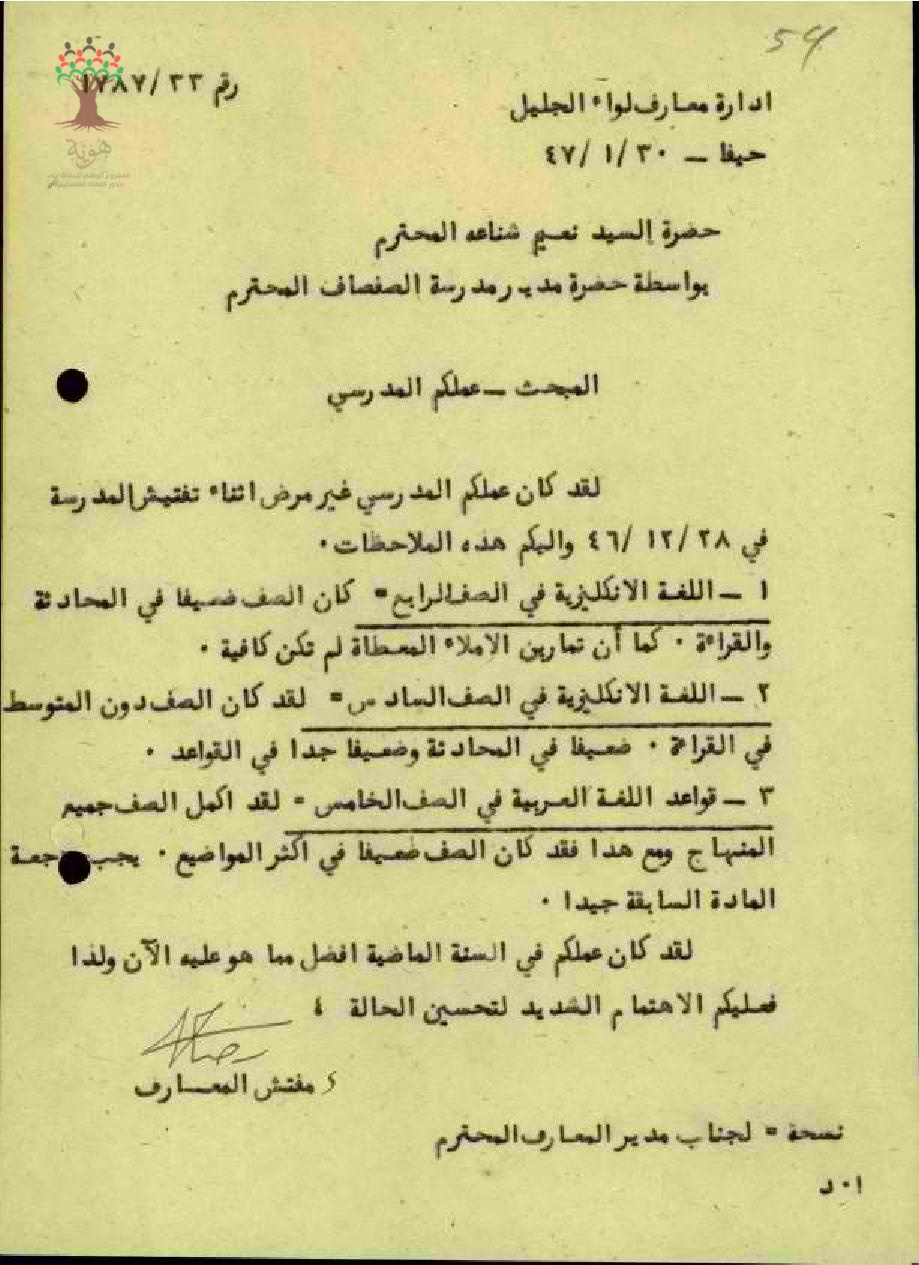 54
رقم ١٧٨٧/٣٣
ادارة معارف لواء الجليل
حيفا – ٣٠ /١ /٤٧
هوية
حضرة السيد نعيم شناعه المحترم
بواسطة حضرة مدير مدرسة الصفصاف المحترم
المبحث – عملكم المدرسي
لقد كان عملكم المدرسي غير مرض اثناء تفتيش المدرسة
في ٢٨ /١٢ /٤٦ واليكم هذه الملاحظات .
١ – اللغة الانكليزية في الصف الرابع = كان الصف ضعيفا في المحادثة
والقراءة . كما أن تمارين الاملاء المعطاة لم تكن كافية .
٢ – اللغة الانكليزية في الصف السادس = لقد كان الصف دون المتوسط
في القراءة . ضعيفا في المحادثة وضعيفا جدا في القواعد .
٣ – قواعد اللغة العربية في الصف الخامس = لقد اكمل الصف جميع
المنهاج ومع هدا فقد كان الصف ضعيفا في اكثر المواضيع . يجب جعة
المادة السابقة جيدا .
لقد كان عملكم في السنة الماضية افضل مما هو عليه الآن ولذا
فعليكم الاهتمام الشديد لتحسين الحالة ٤
مفتش المعارف
نسخة = لجناب مدير المعارف المحترم
ا٠د